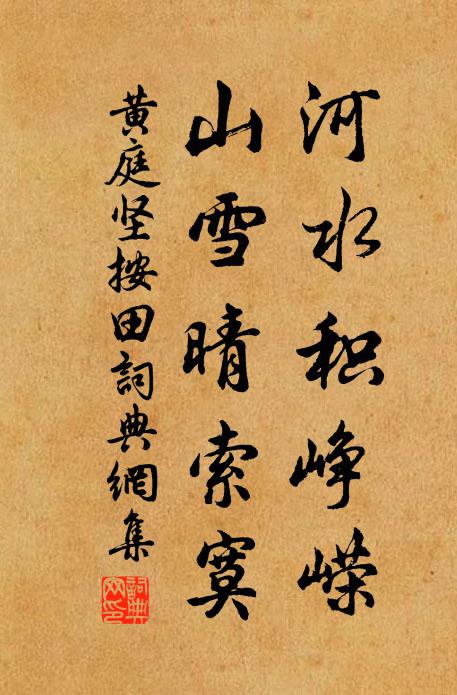 河水积峥嵘
山雪晴索寞
黄庭坚按田詞典網集
詞典网印